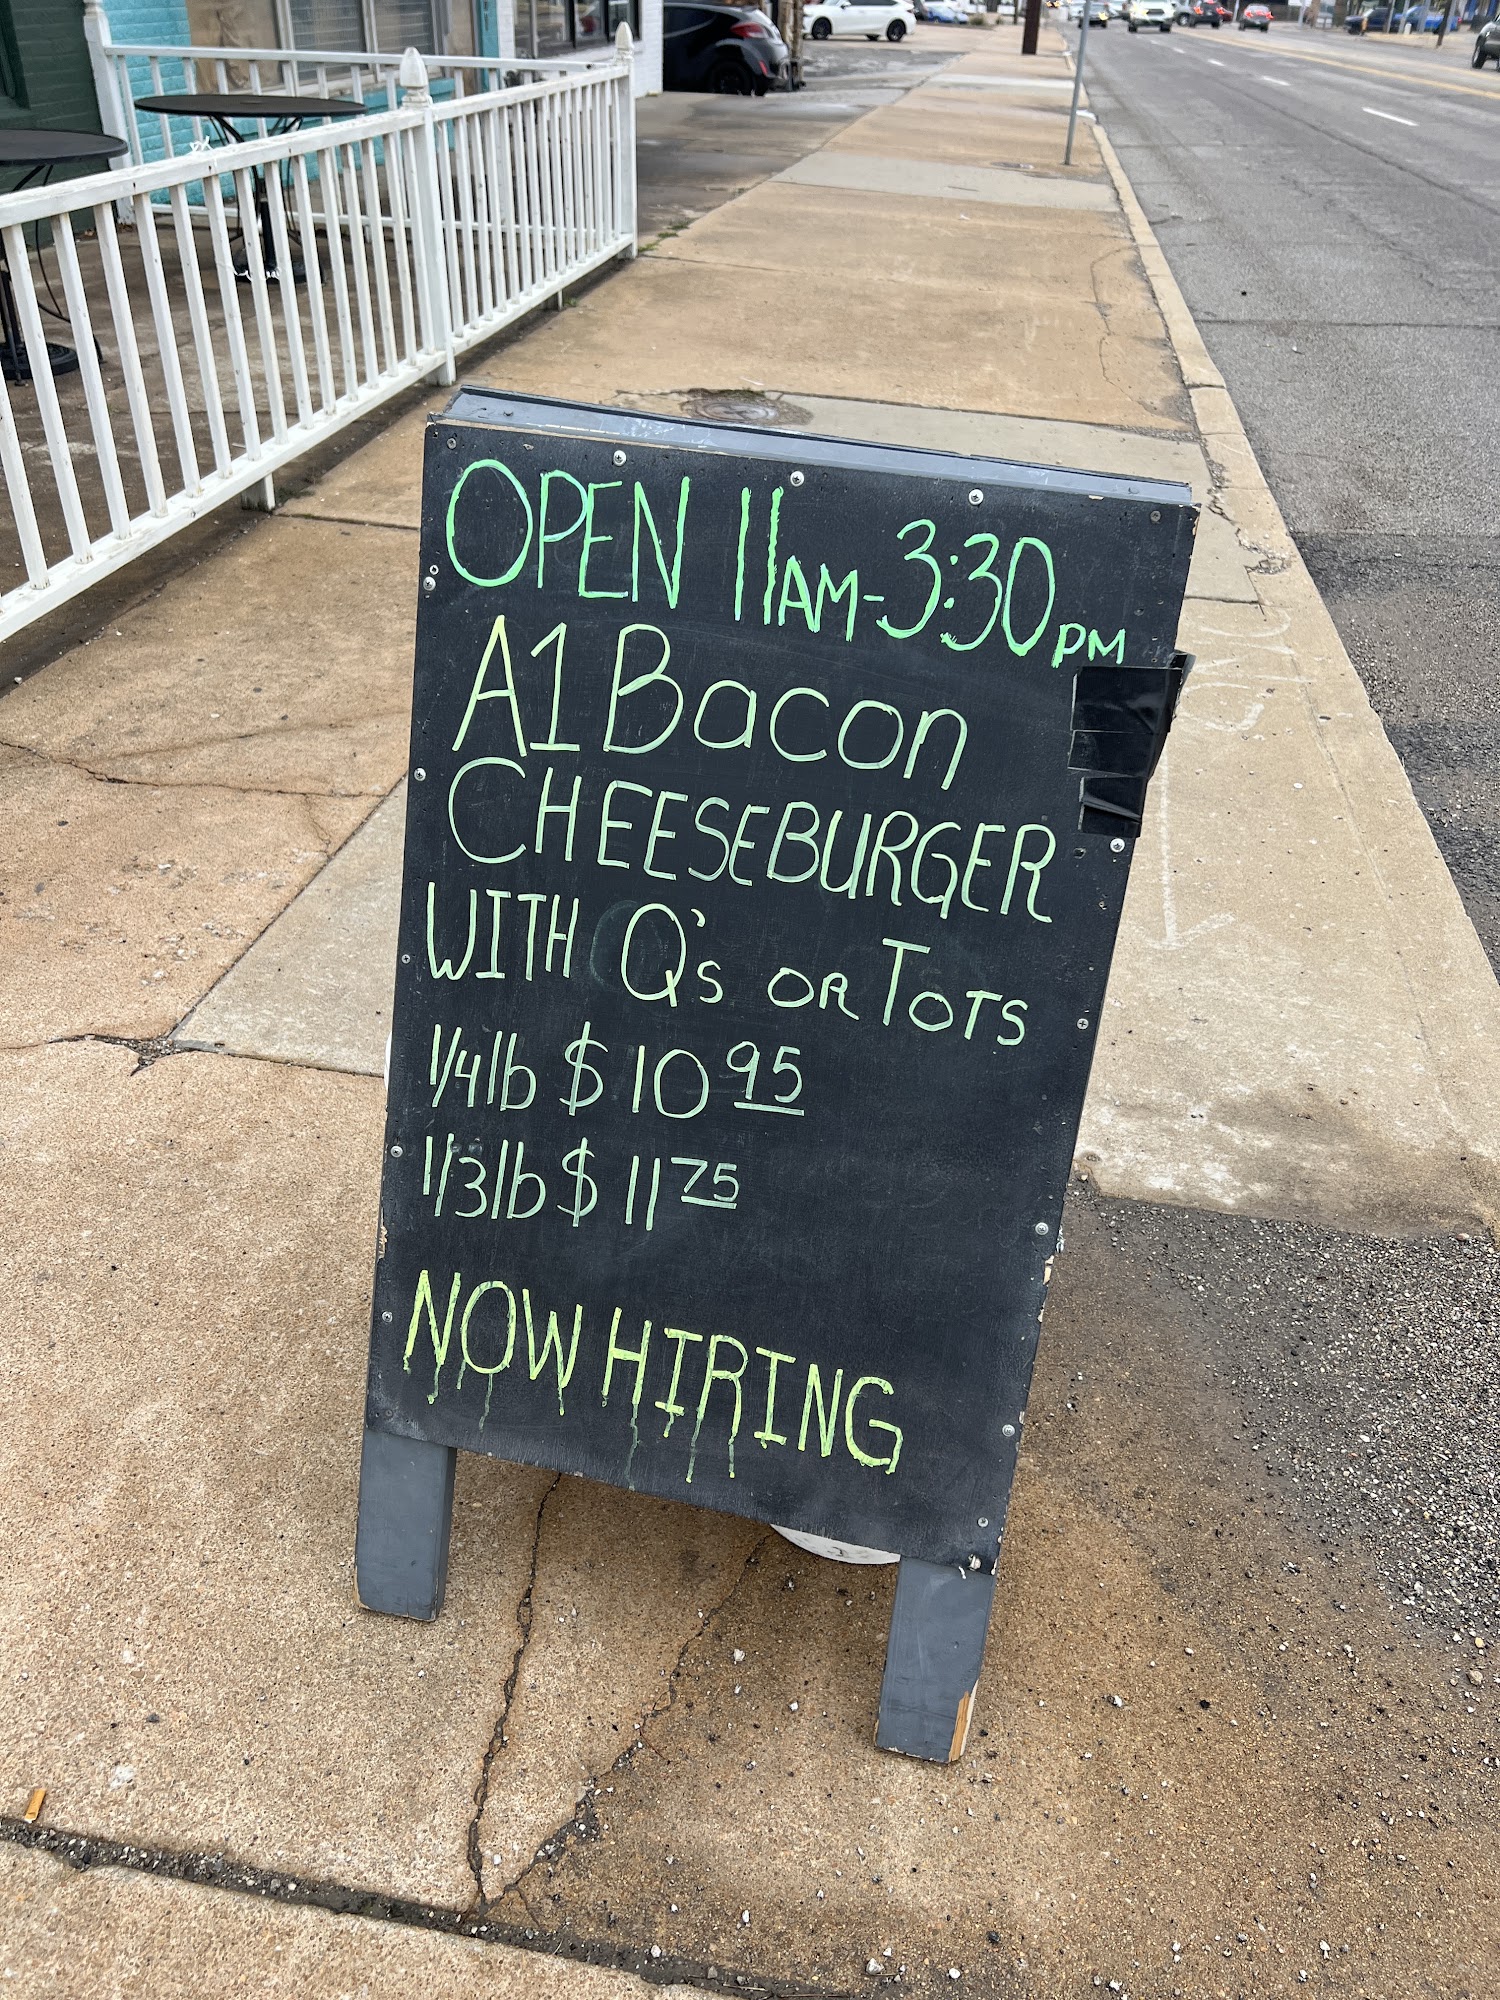 OPEN 11AM-3:30PM
A1 Bacon
CHEESEBURGER
WITH Q's OR TOTS
1/4lb $10 95
1/3lb $11 75
NOW HIRING